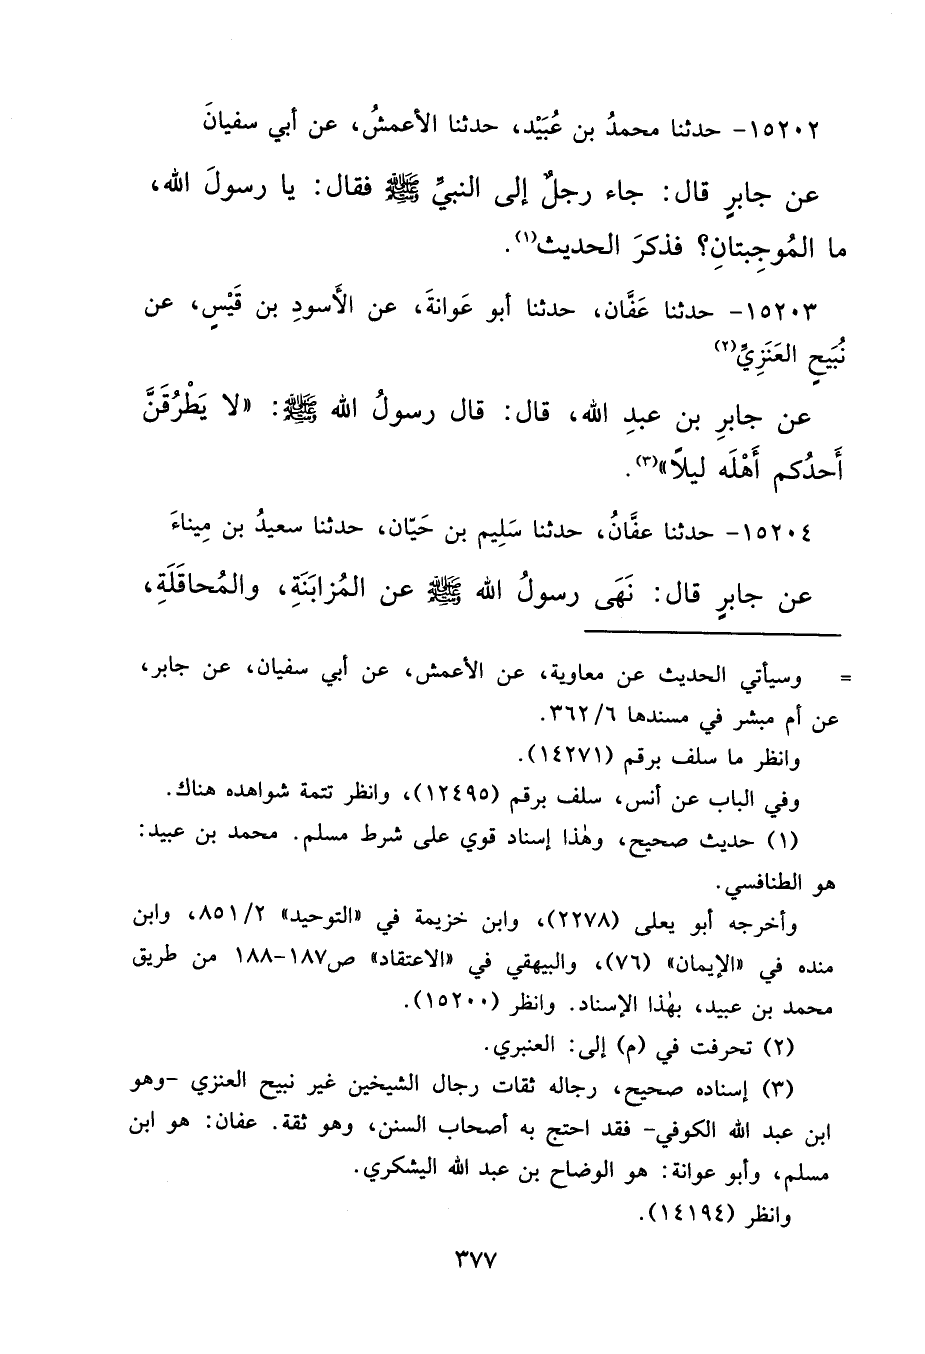 ١٥٢٠٢- حدثنا محمدُ بن عُبَيْد، حدثنا الأعمشُ، عن أبي سفيانَ
عن جابرٍ قال: جاء رجلٌ إلى النبيِّ ﷺ فقال: يا رسولَ الله،
ما المُوجِبتانِ؟ فذكرَ الحديث(١).
١٥٢٠٣- حدثنا عَفَّان، حدثنا أبو عَوانةَ، عن الأَسودِ بن قَيْسٍ، عن
نُبَيحٍ العَنَزِيِّ(٢)
عن جابرِ بن عبدِ الله، قال: قال رسولُ الله ﷺ: «لا يَطْرُقَنَّ
أَحدُكم أَهْلَه ليلاً»(٣).
١٥٢٠٤- حدثنا عفَّانُ، حدثنا سَلِيم بن حَيّان، حدثنا سعيدُ بن مِيناءَ
عن جابرٍ قال: نَهَى رسولُ الله ﷺ عن المُزابَنَةِ، والمُحاقَلَةِ،
= وسيأتي الحديث عن معاوية، عن الأعمش، عن أبي سفيان، عن جابر،
عن أم مبشر في مسندها ٣٦٢/٦.
وانظر ما سلف برقم (١٤٢٧١).
وفي الباب عن أنس، سلف برقم (١٢٤٩٥)، وانظر تتمة شواهده هناك.
(١) حديث صحيح، وهٰذا إسناد قوي على شرط مسلم. محمد بن عبيد:
هو الطنافسي.
وأخرجه أبو يعلى (٢٢٧٨)، وابن خزيمة في «التوحيد» ٨٥١/٢، وابن
منده في «الإيمان» (٧٦)، والبيهقي في «الاعتقاد» ص١٨٧-١٨٨ من طريق
محمد بن عبيد، بهٰذا الإسناد. وانظر (١٥٢٠٠).
(٢) تحرفت في (م) إلى: العنبري.
(٣) إسناده صحيح، رجاله ثقات رجال الشيخين غير نبيح العنزي -وهو
ابن عبد الله الكوفي- فقد احتج به أصحاب السنن، وهو ثقة. عفان: هو ابن
مسلم، وأبو عوانة: هو الوضاح بن عبد الله اليشكري.
وانظر (١٤١٩٤).
٣٧٧